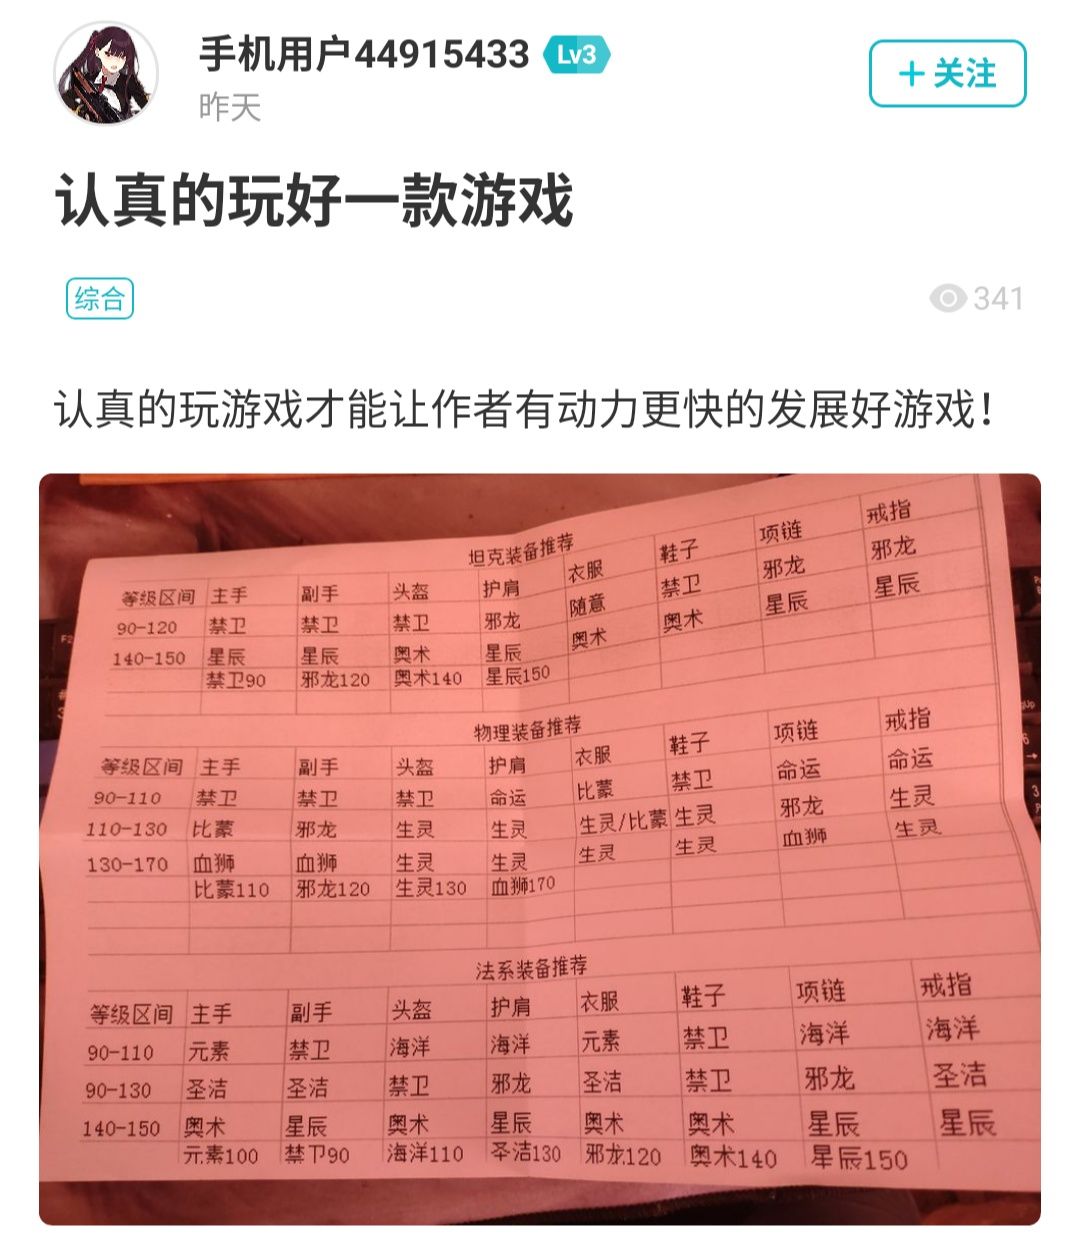 手机用户44915433 Lv3
+ 关注
昨天
认真的玩好一款游戏
综合
341
认真的玩游戏才能让作者有动力更快的发展好游戏！
坦克装备推荐
等级区间 主手 副手 头盔 护肩 衣服 鞋子 项链 戒指
90-120 禁卫 禁卫 禁卫 邪龙 随意 禁卫 邪龙 邪龙
140-150 星辰 星辰 奥术 星辰 奥术 奥术 星辰 星辰
禁卫90 邪龙120 奥术140 星辰150
物理装备推荐
等级区间 主手 副手 头盔 护肩 衣服 鞋子 项链 戒指
90-110 禁卫 禁卫 禁卫 命运 比蒙 禁卫 命运 命运
110-130 比蒙 邪龙 生灵 生灵 生灵/比蒙 生灵 邪龙 生灵
130-170 血狮 血狮 生灵 生灵 生灵 生灵 血狮 生灵
比蒙110 邪龙120 生灵130 血狮170
法系装备推荐
等级区间 主手 副手 头盔 护肩 衣服 鞋子 项链 戒指
90-110 元素 禁卫 海洋 海洋 元素 禁卫 海洋 海洋
90-130 圣洁 圣洁 禁卫 邪龙 圣洁 禁卫 邪龙 圣洁
140-150 奥术 星辰 奥术 星辰 奥术 奥术 星辰 星辰
元素100 禁卫90 海洋110 圣洁130 邪龙120 奥术140 星辰150